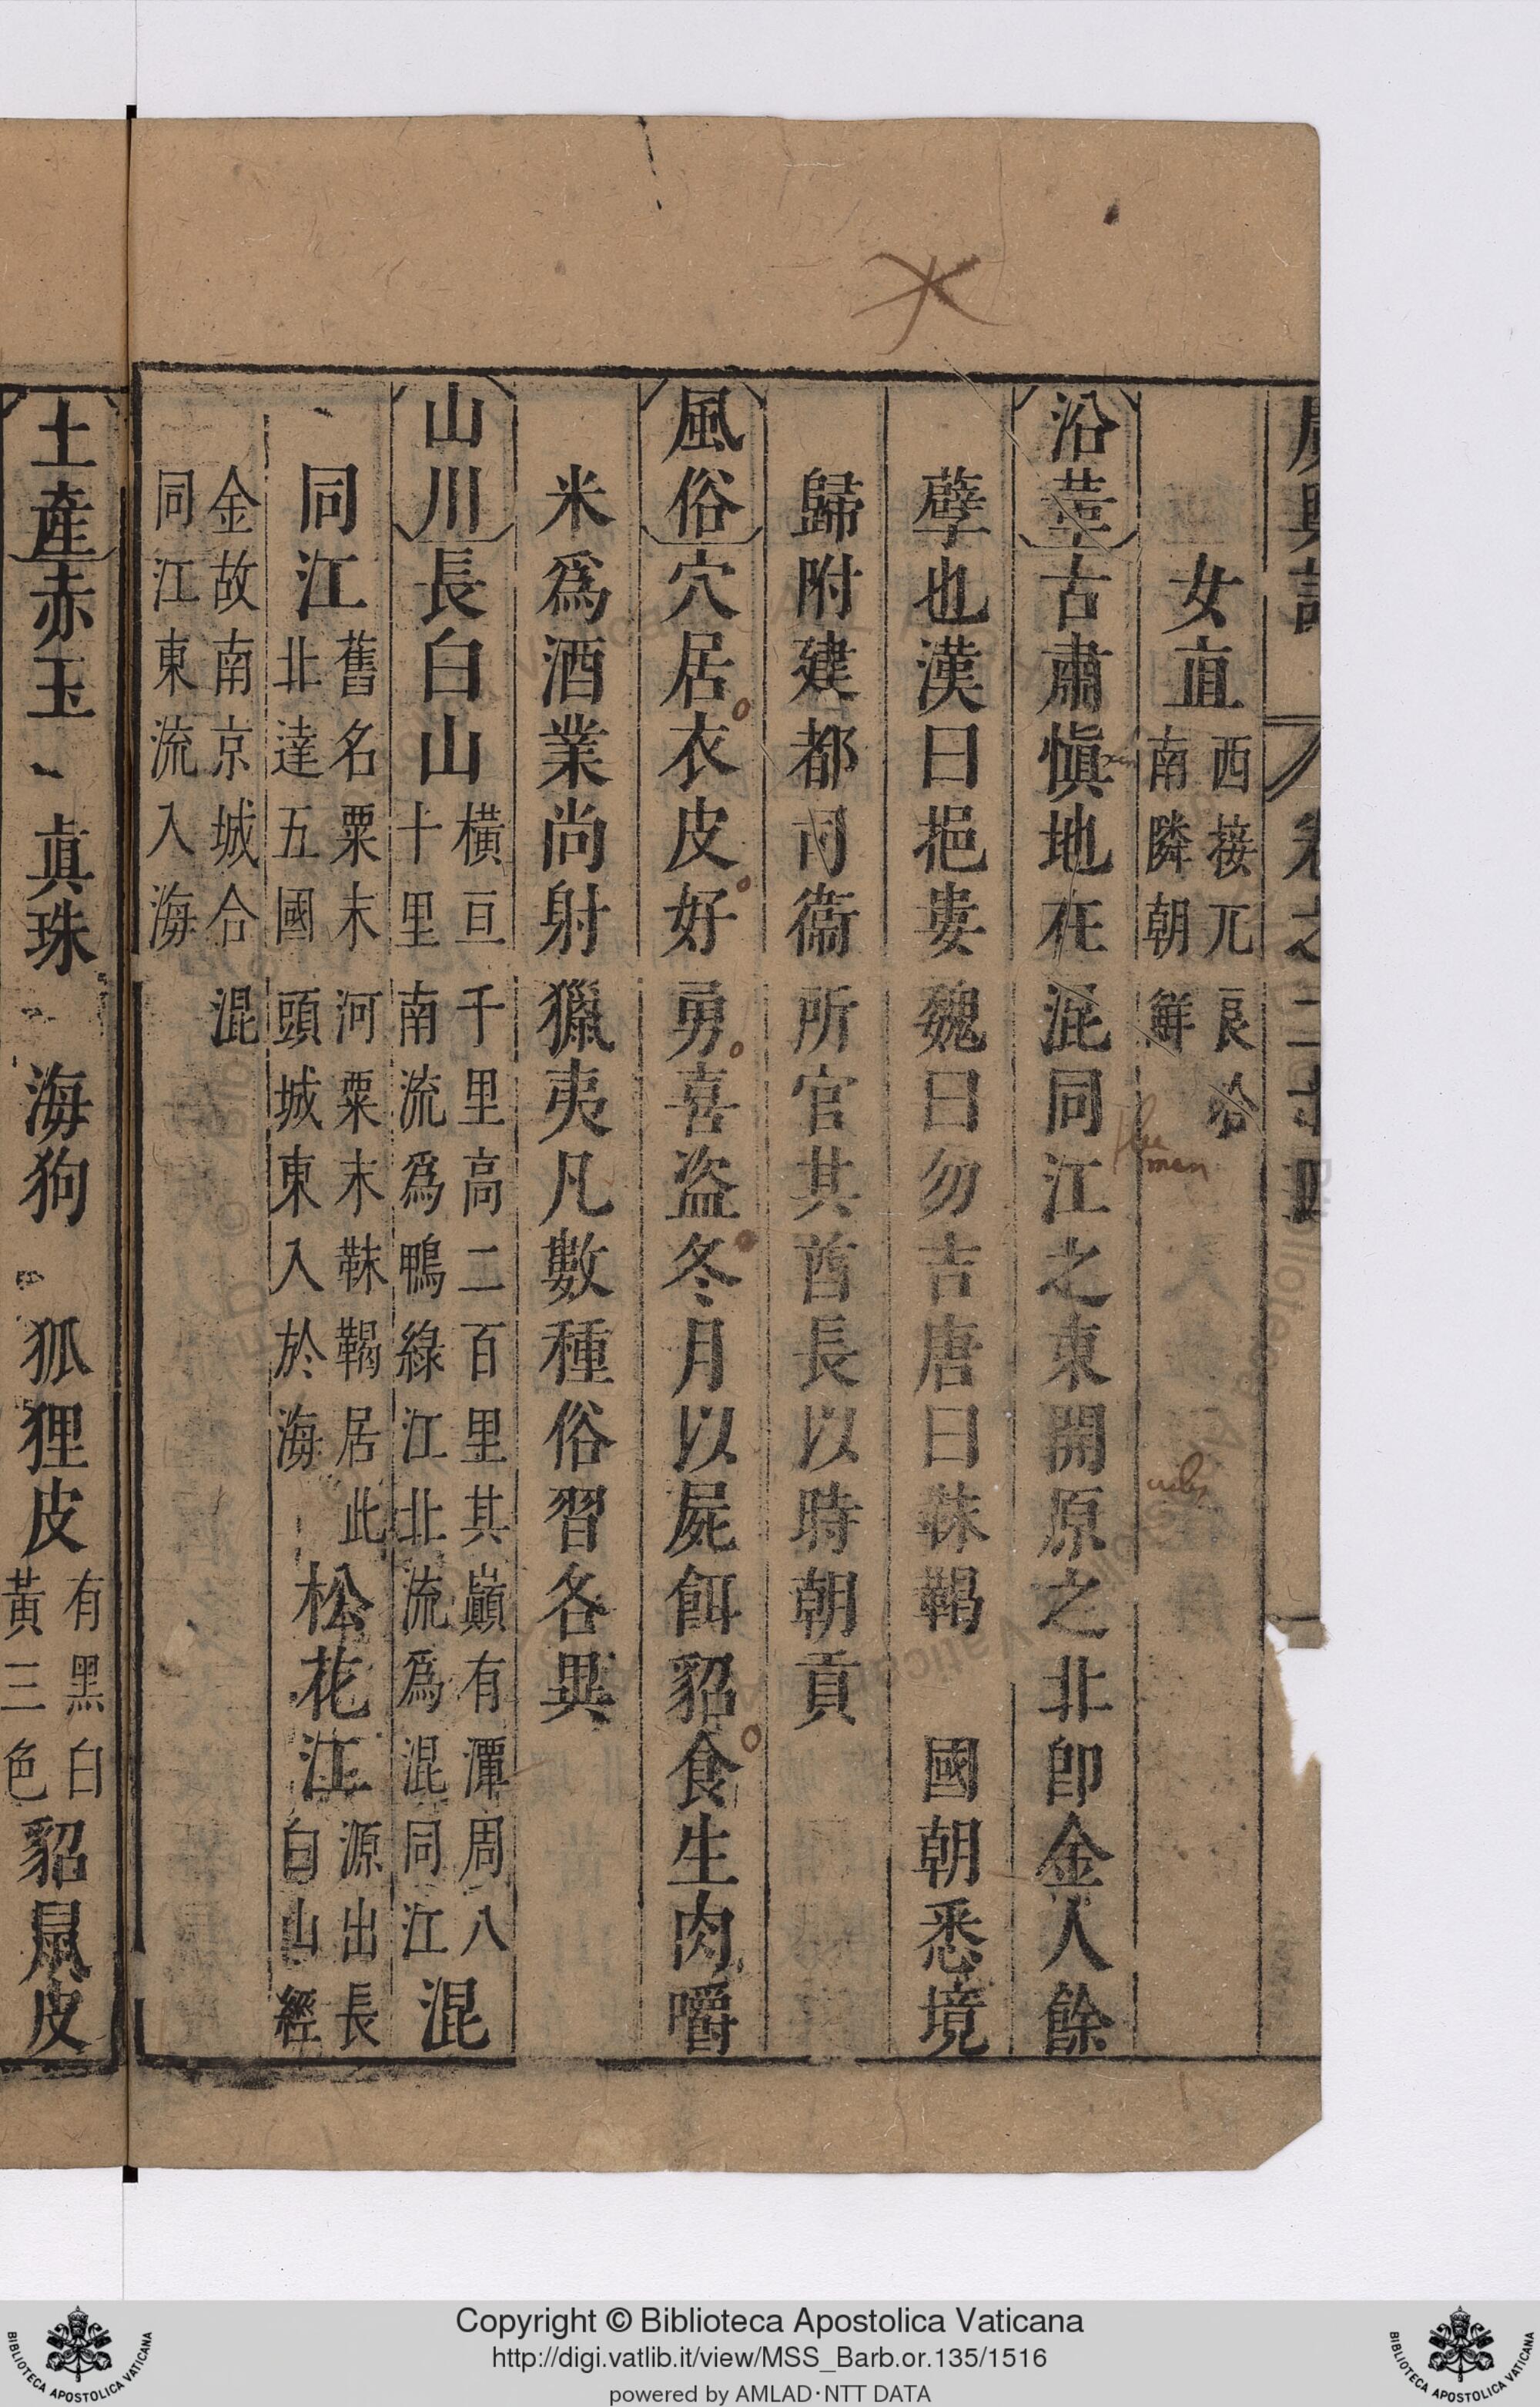 廣輿記 卷之二十四
女直 西接兀良哈 南隣朝鮮
沿革 古肅慎地在混同江之東開原之北卽金人餘
孽也漢曰挹婁魏曰勿吉唐曰靺鞨 國朝悉境
歸附建都司衞所官其酋長以時朝貢
風俗 穴居衣皮好勇喜盗冬月以屍餌貂食生肉嚼
米爲酒業尚射獵夷凡數種俗習各異
山川 長白山 橫亘千里高二百里其巔有潭周八 十里南流爲鴨綠江北流爲混同江 混
同江 舊名粟末河粟末靺鞨居此 北達五國頭城東入於海 松花江 源出長 白山經
金故南京城合混 同江東流入海
土產 赤玉 眞珠 海狗 狐狸皮 有黑白 黃三色 貂鼠皮
Copyright © Biblioteca Apostolica Vaticana
http://digi.vatlib.it/view/MSS_Barb.or.135/1516
powered by AMLAD·NTT DATA
BIBLIOTECA APOSTOLICA VATICANA
BIBLIOTECA APOSTOLICA VATICANA